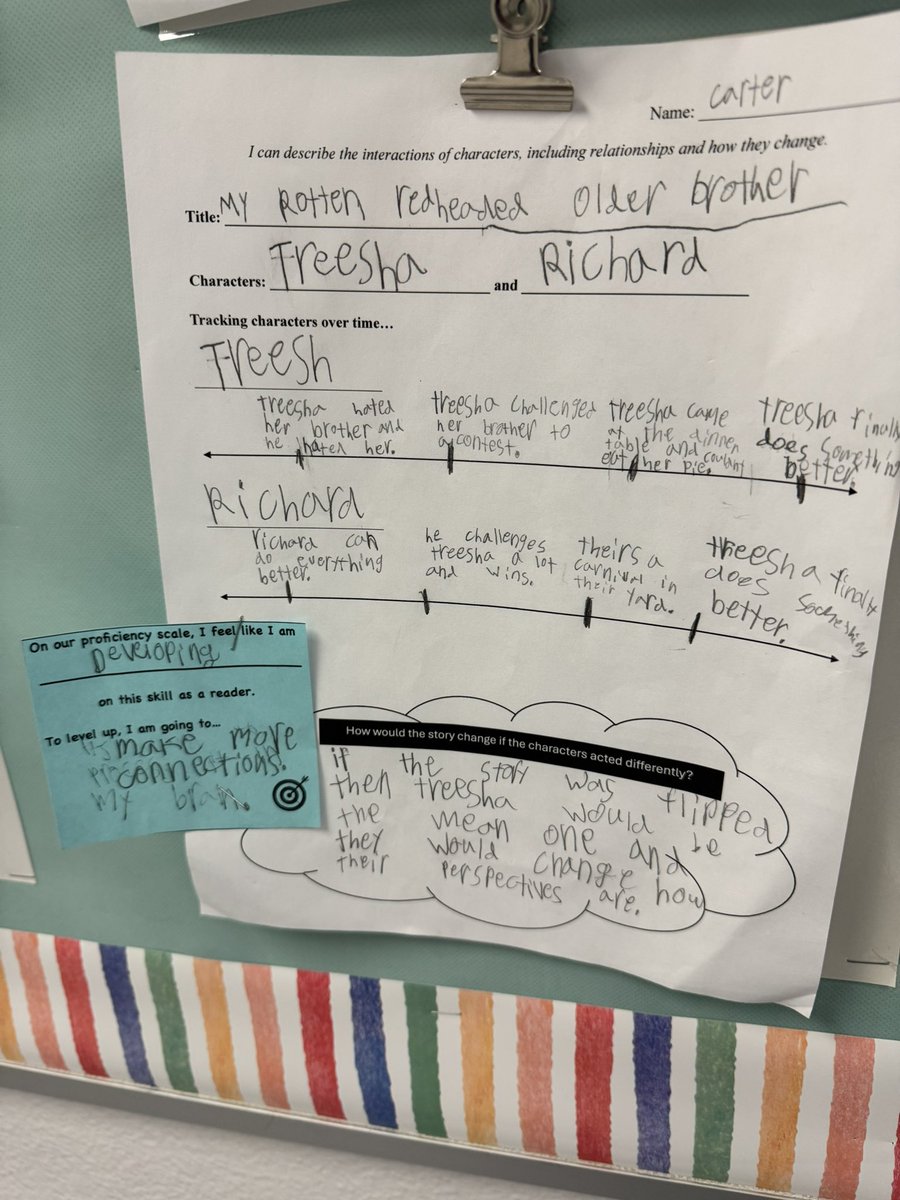 Name: carter
I can describe the interactions of characters, including relationships and how they change.
Title: MY Rotten redheaded Older brother
Characters: Treesha and Richard
Tracking characters over time...
Treesh
treesha hated
her brother and
he hated her.
treesha challenged
her brother to
a contest.
treesha came
at the dinner
table and couldnt
eat her pie.
treesha finally
does something
better.
Richard
richard can
do everything
better.
he challenges
treesha a lot
and wins.
theirs a
carnival in
their yard.
treesha finally
does something
better.
On our proficiency scale, I feel like I am
Developing
on this skill as a reader.
To level up, I am going to...
make more
connections.
my
How would the story change if the characters acted differently?
if the story was flipped
then treesha would be
the mean one and
they would change how
their perspectives are.